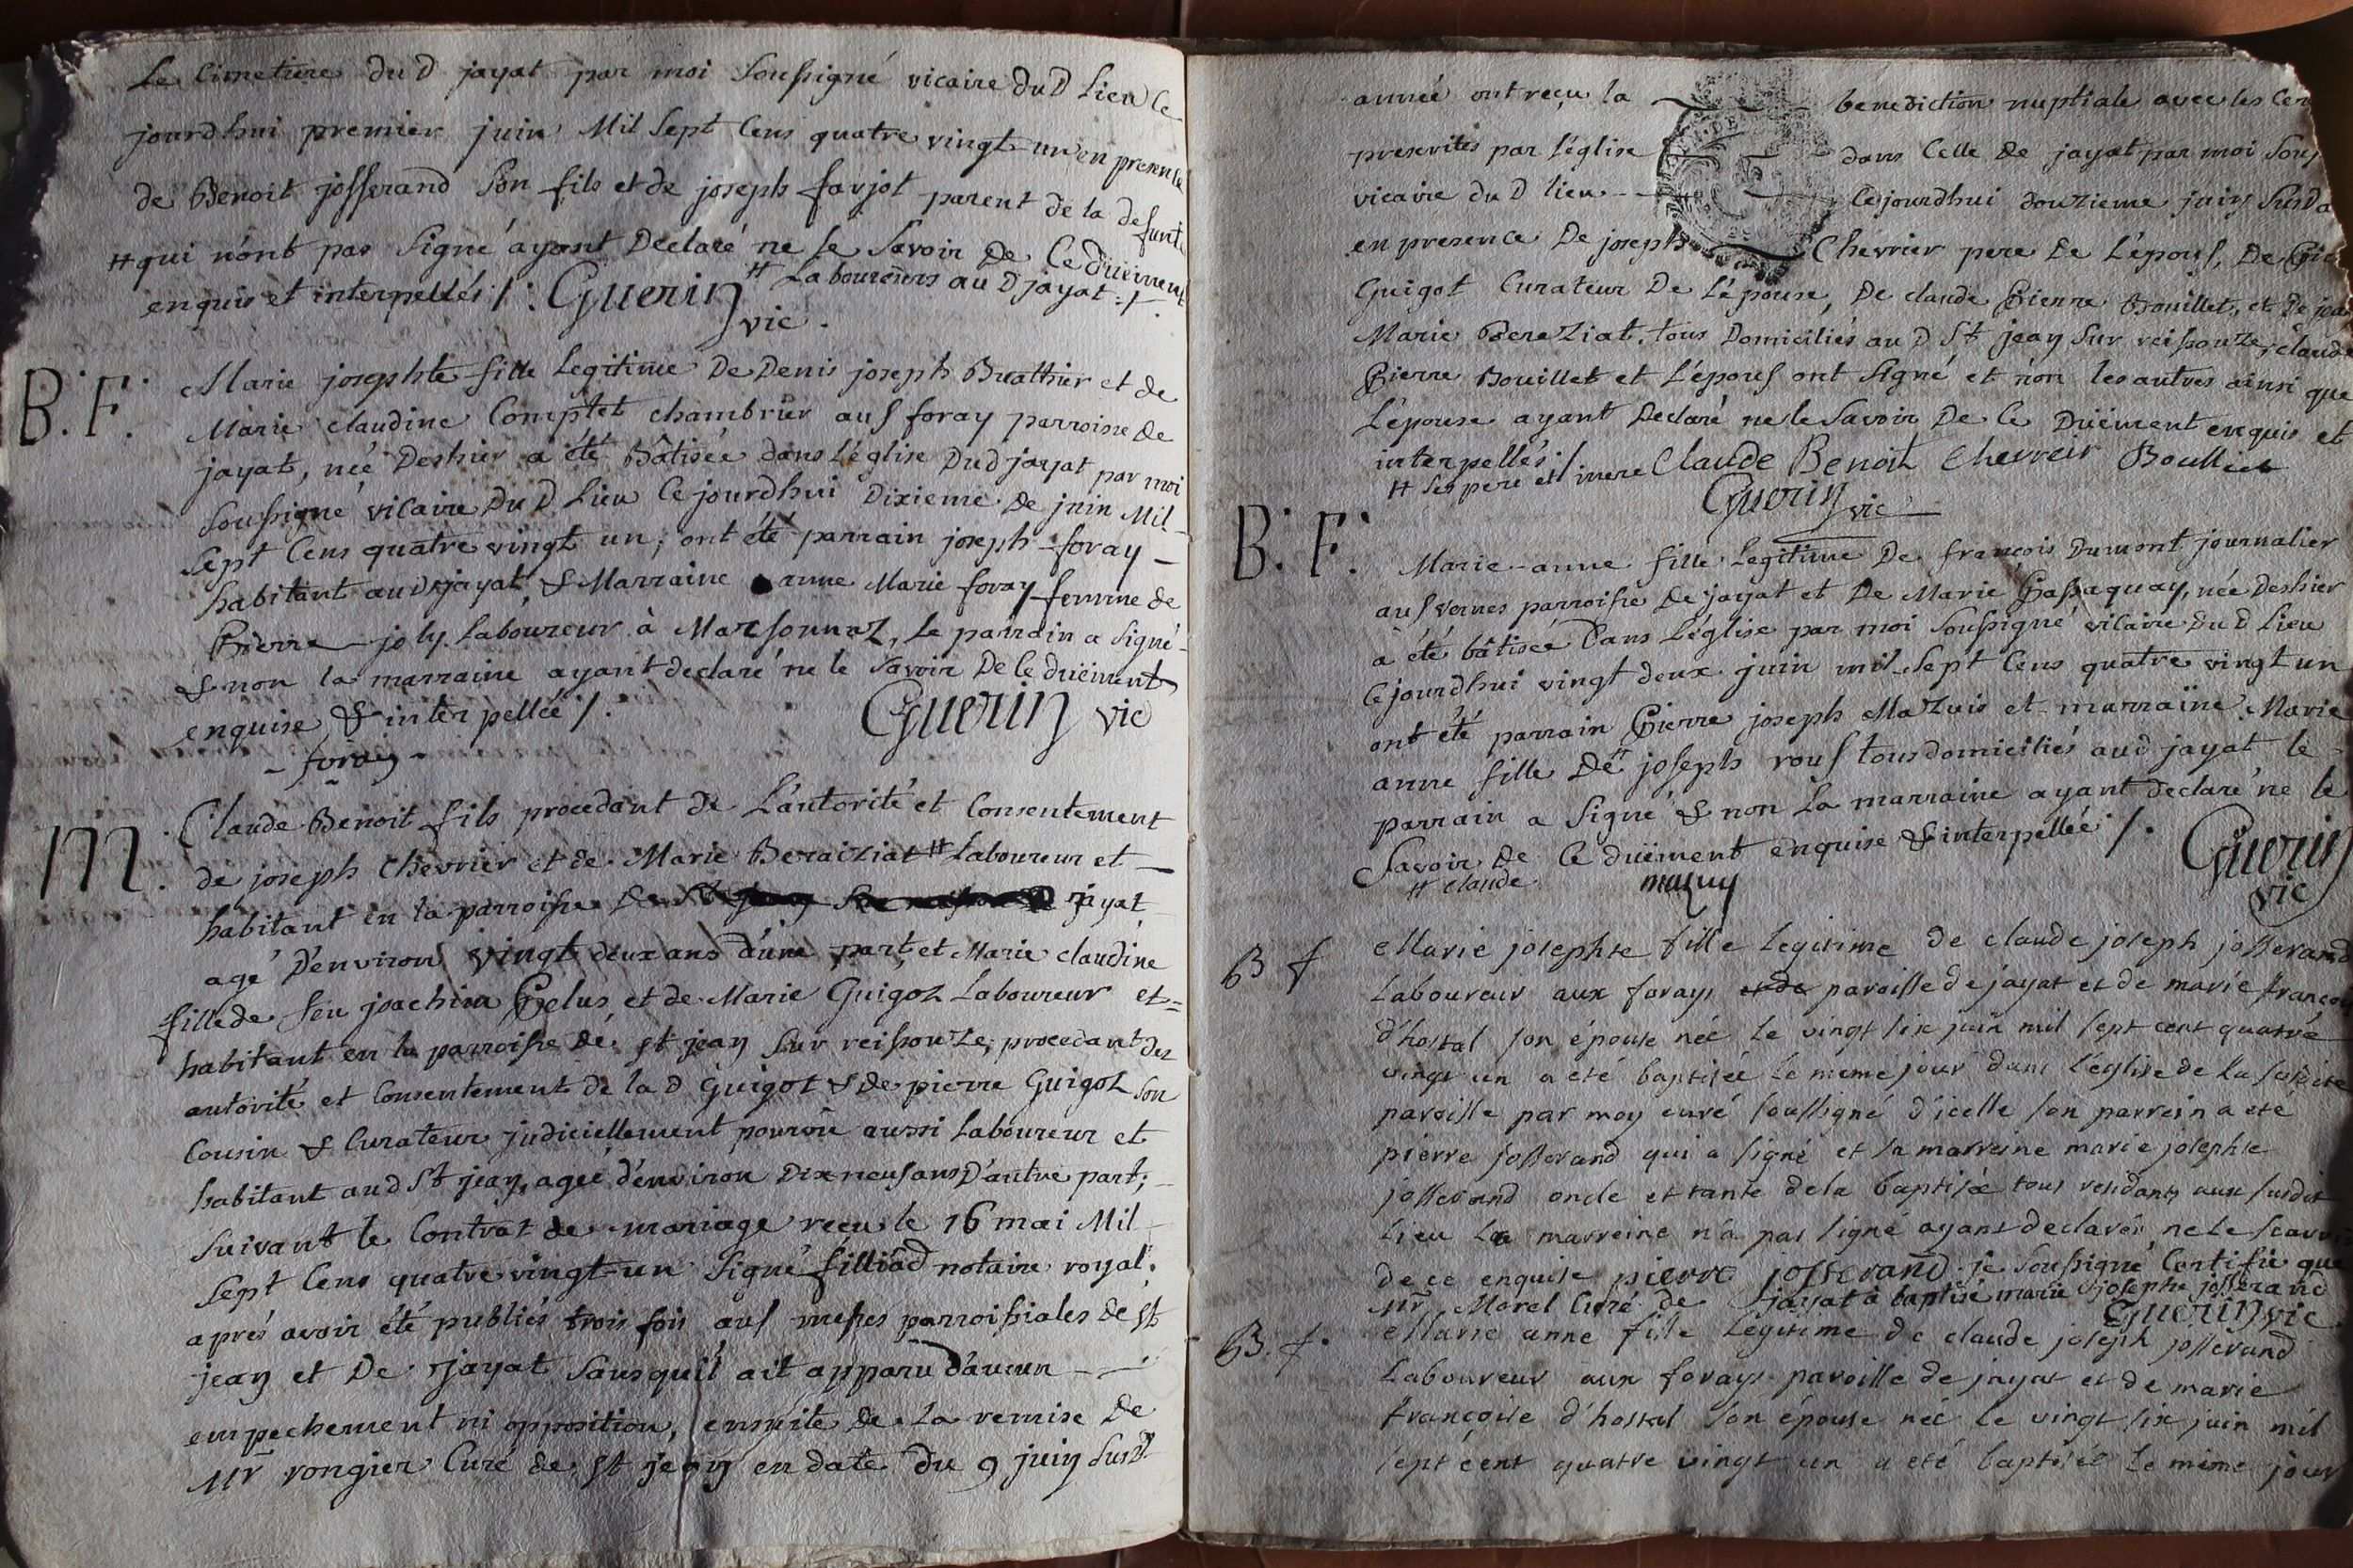 Le Cimetiere du D jayat par moi Soussigné vicaire du D Lieu Ce
jourdhui premier juin Mil Sept Cens quatre vingt un en presence
de Benoit josserand Son fils et de joseph farjot parent de la defunte
# qui n'ont pas Signé ayant Declaré ne le Savoir De Ce düement
enquis et interpellés /: Guerin vic. # Laboureurs au D jayat :/.
B. F. Marie josephte fille Legitime De Denis joseph Buathier et de
Marie claudine Comptet chambrier aus foray parroisse de
jayat, née Deshier a été Bâtisée dans l'église Dud jayat par moi
Soussigné vicaire Du D Lieu Ce jourdhui Dixieme de juin Mil
Sept Cens quatre vingt un; ont été parrain joseph foray
habitant aud jayat & Marraine anne Marie foray femme de
Pierre joly Laboureur à Marsonnaz, Le parrain a Signé
& non la marraine ayant declaré ne le Savoir De Ce düement
enquise & interpellée /. Guerin vic
- foray -
M. Claude Benoit fils procedant de L'autorité et Consentement
de joseph Chevrier et de Marie Beraiziat # Laboureur et
habitant en la parroisse De jayat
agé D'environ vingt deux ans d'une part, et Marie claudine
fille de feu joachim Pelus et de Marie Guigoz Laboureur et
habitant en la parroisse De St jean Sur reissouze, procedant des
autorité et Consentement de la D Guigoz & de pierre Guigoz Son
Cousin & Curateur judiciellement pourvû aussi Laboureur et
habitant aud St jean, agée d'environ Dix neuf ans D'autre part;
Suivant le Contrat de mariage reçu le 16 mai Mil
Sept Cens quatre vingt un Signé filliod notaire royal.
aprés avoir été publiés trois fois aus messes parroissiales de St
jean et De jayat Sans quil ait apparu d'aucun
empechement ni opposition, ensuite de la remise De
Mr rongier Curé de St jean en date Du 9 juin Susdt
année ont reçu la benediction nuptiale avec les
prescrites par l'église dans Celle de jayat par moi
vicaire du D lieu Ce jourdhui douzieme juin
en presence De joseph Chevrier pere de L'épous, De
Guigot Curateur De L'épouse, De claude Pierre Bouillet, et De
Marie Bereziat, tous Domiciliés au D St jean Sur reissouze, claude
Pierre Bouillet et L'épous ont Signé et non les autres ainsi que
L'épouse ayant Declaré ne le Savoir De Ce Düement enquis et
interpellés /. Claude Benoit Chevreir Boullier
# Ses pere et mere Guerin vic
B. F. Marie-anne fille Legitime De françois Dumont journalier
aus vernes parroisse De jayat et De Marie Passaquay, née Deshier
à été bâtisée Dans L'église par moi Soussigné vicaire Du D Lieu
Ce jourdhui vingt deux juin mil Sept Cens quatre vingt un
ont été parrain Pierre joseph Mazuis et marraine Marie
anne fille De # joseph rous tous domiciliés aud jayat le
parrain a Signé & non La marraine ayant declaré ne le
Savoir De Ce düement enquise & interpellée /. Guerin
# claude mazuy vic
B f Marie josephte fille legitime de claude joseph josserand
Laboureur aux forays paroisse de jayat et de marie
d'hostal son épouse née le vingt six juin mil sept cent quatre
vingt un a eté baptisée le meme jour dans l'église de la susdite
paroisse par moy curé soussigné d'icelle son parrein a eté
pierre josserand qui a signé et sa marreine marie josephte
josserand oncle et tante de la baptisée tous residants aux susdit
Lieu La marreine n'a pas signé ayant declaré ne le
de ce enquise pierre josserand je Soussigné Certifie que
Mr Morel Curé de jayat a baptisé marie josephe josserand
Guerin vic.
B. f. Marie anne fille legitime de claude joseph josserand
Laboureur aux forays paroisse de jayat et de marie
françoise d'hostal son épouse née le vingt six juin mil
sept cent quatre vingt un a eté baptisée le meme jour